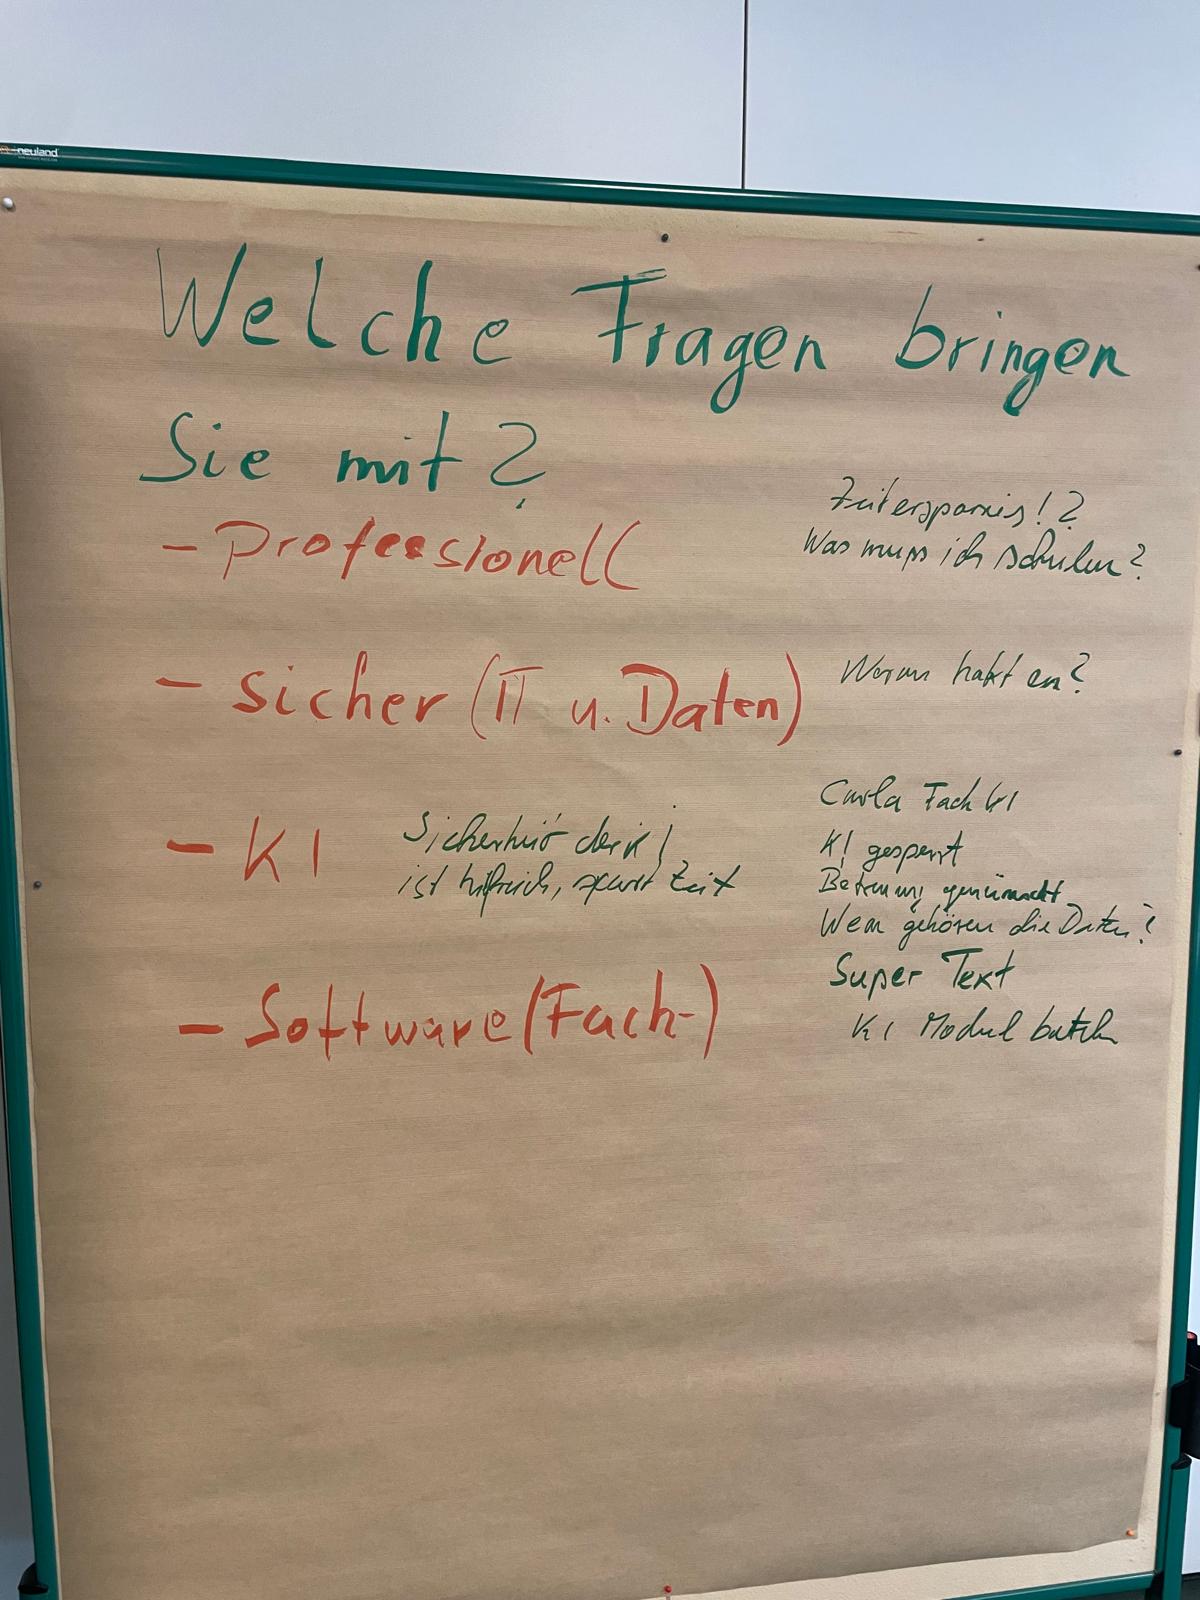 neuland
Welche Fragen bringen
Sie mit?
- Professionell
Zeitersparnis!?
Was muss ich schulen?
- sicher (IT u. Daten)
Woran hakt es?
- KI
Sicherheit der KI
ist hilfreich, spart Zeit
Carla Fach KI
KI gesperrt
gewünscht
Wem gehören die Daten?
Super Text
- Software (Fach-)
KI Modul